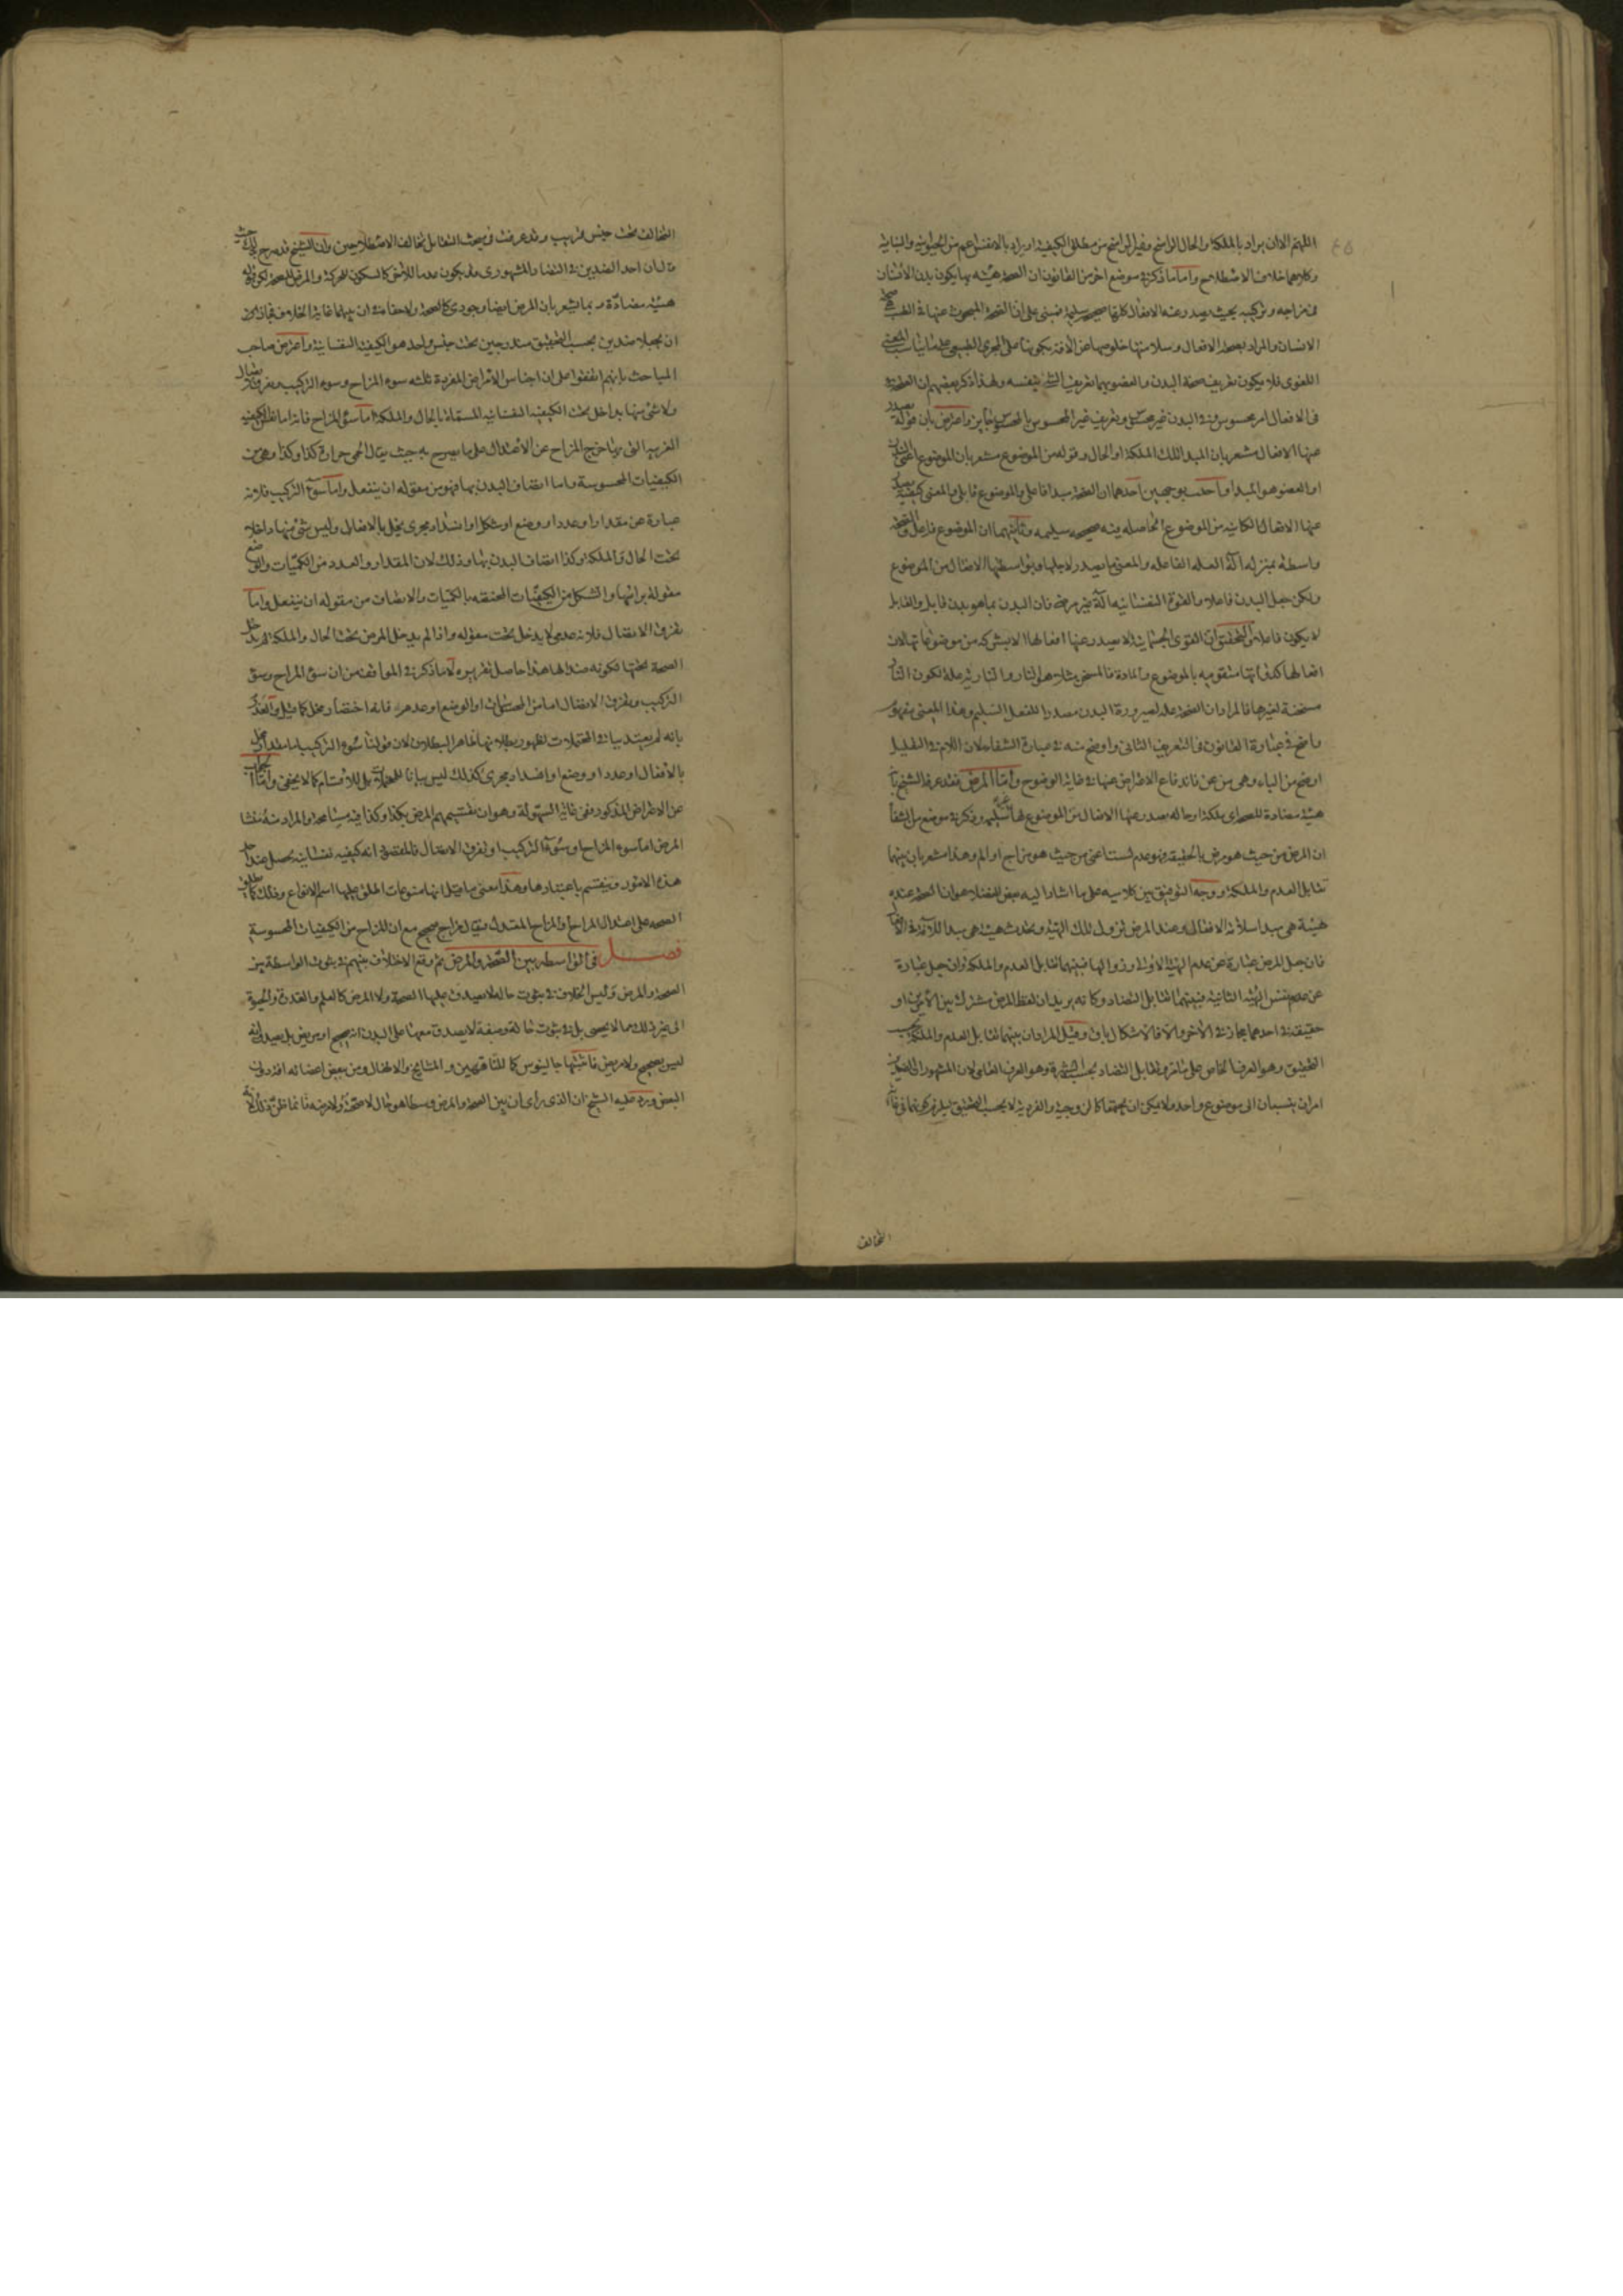 اللهم الا ان يراد بالملكة والحال الراسخ وغير الراسخ من مطلق الكيفية او يراد بالانفس اعم من الحيوانية والنباتية
وكلاهما خلاف الاصطلاح واما ما ذكر في موضع اخر من القانون ان الصحة هيئة بها يكون بدن الانسان
في مزاجه وتركيبه بحيث يصدر عنه الافعال كلها صحيحة سليمة فمبني على ان الصحة المبحوث عنها في الطب صحة
الانسان والمراد بصحة الافعال وسلامتها خلوصها عن الآفة وكونها على المجرى الطبيعي على ما يناسب المعنى
اللغوي فلا يكون تعريف صحة البدن والعضو بها تعريف الشئ بنفسه ولهذا ذكر بعضهم ان الصحة
في الافعال امر محسوس وفي البدن غير محسوس وتعريف غير المحسوس بالمحسوس جايز واعترض بان قوله يصدر
عنها الافعال مشعر بان المبدا تلك الملكة او الحال وقوله من الموضوع مشعر بان الموضوع اعني البدن
او العضو هو المبدا واجيب بوجهين احدهما ان الصحة مبدا فاعلي والموضوع قابلي والمعنى كيفية يصدر
عنها الافعال الكائنة من الموضوع الحاصلة فيه صحيحة سليمة وثانيهما ان الموضوع فاعل والصحة
واسطة بمنزلة آلة العلة الفاعلة والمعنى ما يصدر لاجلها وبواسطتها الافعال من الموضوع
ولكن جعل البدن فاعلا والقوة النفسانية آلة غير مرضي فان البدن بما هو بدن قابل والقابل
لا يكون فاعلا والتحقيق ان القوى الجسمانية لا يصدر عنها افعالها الا بشركة من موضوعاتها لان
افعالها كذواتها متقومة بالموضوع والمادة فالمسخن مثلا هو النار والنارية علة لكون النار
مسخنة لغيرها فالمراد ان الصحة علة لصيرورة البدن مصدرا للفعل السليم وهذا المعنى مفهوم
واضح في عبارة القانون في التعريف الثاني واوضح منه في عبارة الشفا لان اللام في التعليل
اوضح من الباء وهي من عن فاندفاع الاعتراض عنها في غاية الوضوح واما المرض فقد عرفه الشيخ بانه
هيئة مضادة للصحة اي ملكة او حالة يصدر عنها الافعال من الموضوع لها غير سليمة وذكر في موضع من الشفا
ان المرض من حيث هو مرض بالحقيقة فهو عدم لست اعني من حيث هو مزاج او الم وهذا مشعر بان بينهما
تقابل العدم والملكة ووجه التوفيق بين كلاميه على ما اشار اليه بعض الفضلا هو ان الصحة عنده
هيئة هي مبدا سلامة الافعال وعند المرض تزول تلك الهيئة ويحدث هيئة هي مبدا للآفة في الافعال
فان جعل المرض عبارة عن عدم الهيئة الاولى وزوالها فبينهما تقابل العدم والملكة وان جعل عبارة
عن نفس الهيئة الثانية فبينهما تقابل التضاد وكانه يريد ان لفظ المرض مشترك بين الامرين او
حقيقة في احدهما مجاز في الآخر والا فالاشكال باق وقيل المراد ان بينهما تقابل العدم والملكة بحسب
التحقيق وهو العرف الخاص على ما مر وتقابل التضاد بحسب الشهرة وهو العرف العامي لان المشهور ان الضدين
امران ينسبان الى موضوع واحد ولا يمكن ان يجتمعا كالزوجية والفردية لا بحسب التحقيق
التخالف
التخالف تحت جنس قريب وقد عرفت في بحث التقابل تخالف الاصطلاحين وان الشيخ قد صرح بذلك حيث
قال ان احد الضدين في التضاد المشهوري قد يكون عدما للآخر كالسكون للحركة والمرض للصحة لكن قوله
هيئة مضادة ربما يشعر بان المرض ايضا وجودي كالصحة ولا خفاء في ان بينهما غاية الخلاف فجاز
ان يجعلا ضدين بحسب التحقيق مندرجين تحت جنس واحد هو الكيفية النفسانية واعترض صاحب
المباحث بانهم اتفقوا على ان اجناس الامراض المفردة ثلثة سوء المزاج وسوء التركيب وتفرق الاتصال
ولا شئ منها بداخل تحت الكيفية النفسانية المسماة بالحال والملكة اما سوء المزاج فانه اما نفس الكيفية
الغريبة التي بها خرج المزاج عن الاعتدال على ما يصرح به حيث يقال الحمى حرارة كذا وكذا وهي من
الكيفيات المحسوسة واما اتصاف البدن بها فهو من مقولة ان ينفعل واما سوء التركيب فلانه
عبارة عن مقدار او عدد او وضع او شكل او انسداد مجرى يخل بالافعال وليس شئ منها داخلا
تحت الحال والملكة وكذا اتصاف البدن بها وذلك لان المقدار والعدد من الكميات والوضع
مقولة براسها والشكل من الكيفيات المختصة بالكميات والاتصاف من مقولة ان ينفعل واما
تفرق الاتصال فلانه عدمي لا يدخل تحت مقولة واذا لم يدخل المرض تحت الحال والملكة لم يدخل
الصحة تحتها لكونه ضدا لها هذا حاصل تقريره لا ما ذكر في المواقف من ان سوء المزاج وسوء
التركيب وتفرق الاتصال اما من المحسوسات او الوضع او عدم فانه اختصار مخل كما قيل والعذر
بانه لم يعتد بباقي المحتملات لظهور بطلانها ظاهر البطلان لان قولنا سوء التركيب اما مقدار يخل
بالافعال او عدد او وضع او انسداد مجرى كذلك ليس بيانا للمحتملات بل للاقسام كما لا يخفى واما الجواب
عن الاعتراض المذكور ففي غاية السهولة وهو ان تقسيمهم المرض بكذا وكذا فيه مسامحة والمراد منه منشا
المرض اما سوء المزاج او سوء التركيب او تفرق الاتصال فالمقصود انه كيفية نفسانية يحصل عند احد
هذه الامور وينقسم باعتبارها وهذا معنى ما قيل انها منوعات اطلق عليها اسم الانواع وذلك كما يطلق
الصحة على اعتدال المزاج او المزاج المعتدل فيقال مزاج صحيح مع ان المزاج من الكيفيات المحسوسة
فصل في الواسطة بين الصحة والمرض ثم وقع الاختلاف بينهم في ثبوت الواسطة بين
الصحة والمرض وليس الخلاف في ثبوت حالة لا يصدق عليها الصحة ولا المرض كالعلم والقدرة والحيوة
الى غير ذلك مما لا يحصى بل في ثبوت حالة وصفة لا يصدق معها على البدن انه صحيح او مريض بل يصدق انه
ليس بصحيح ولا مريض فاثبتها جالينوس كما للناقهين والمشايخ والاطفال ومن ببعض اعضائه آفة دون
البعض ورد عليه الشيخ ان الذي راى ان بين الصحة والمرض وسطا هو حال لا صحة ولا مرض فانما ظن ذلك لانه